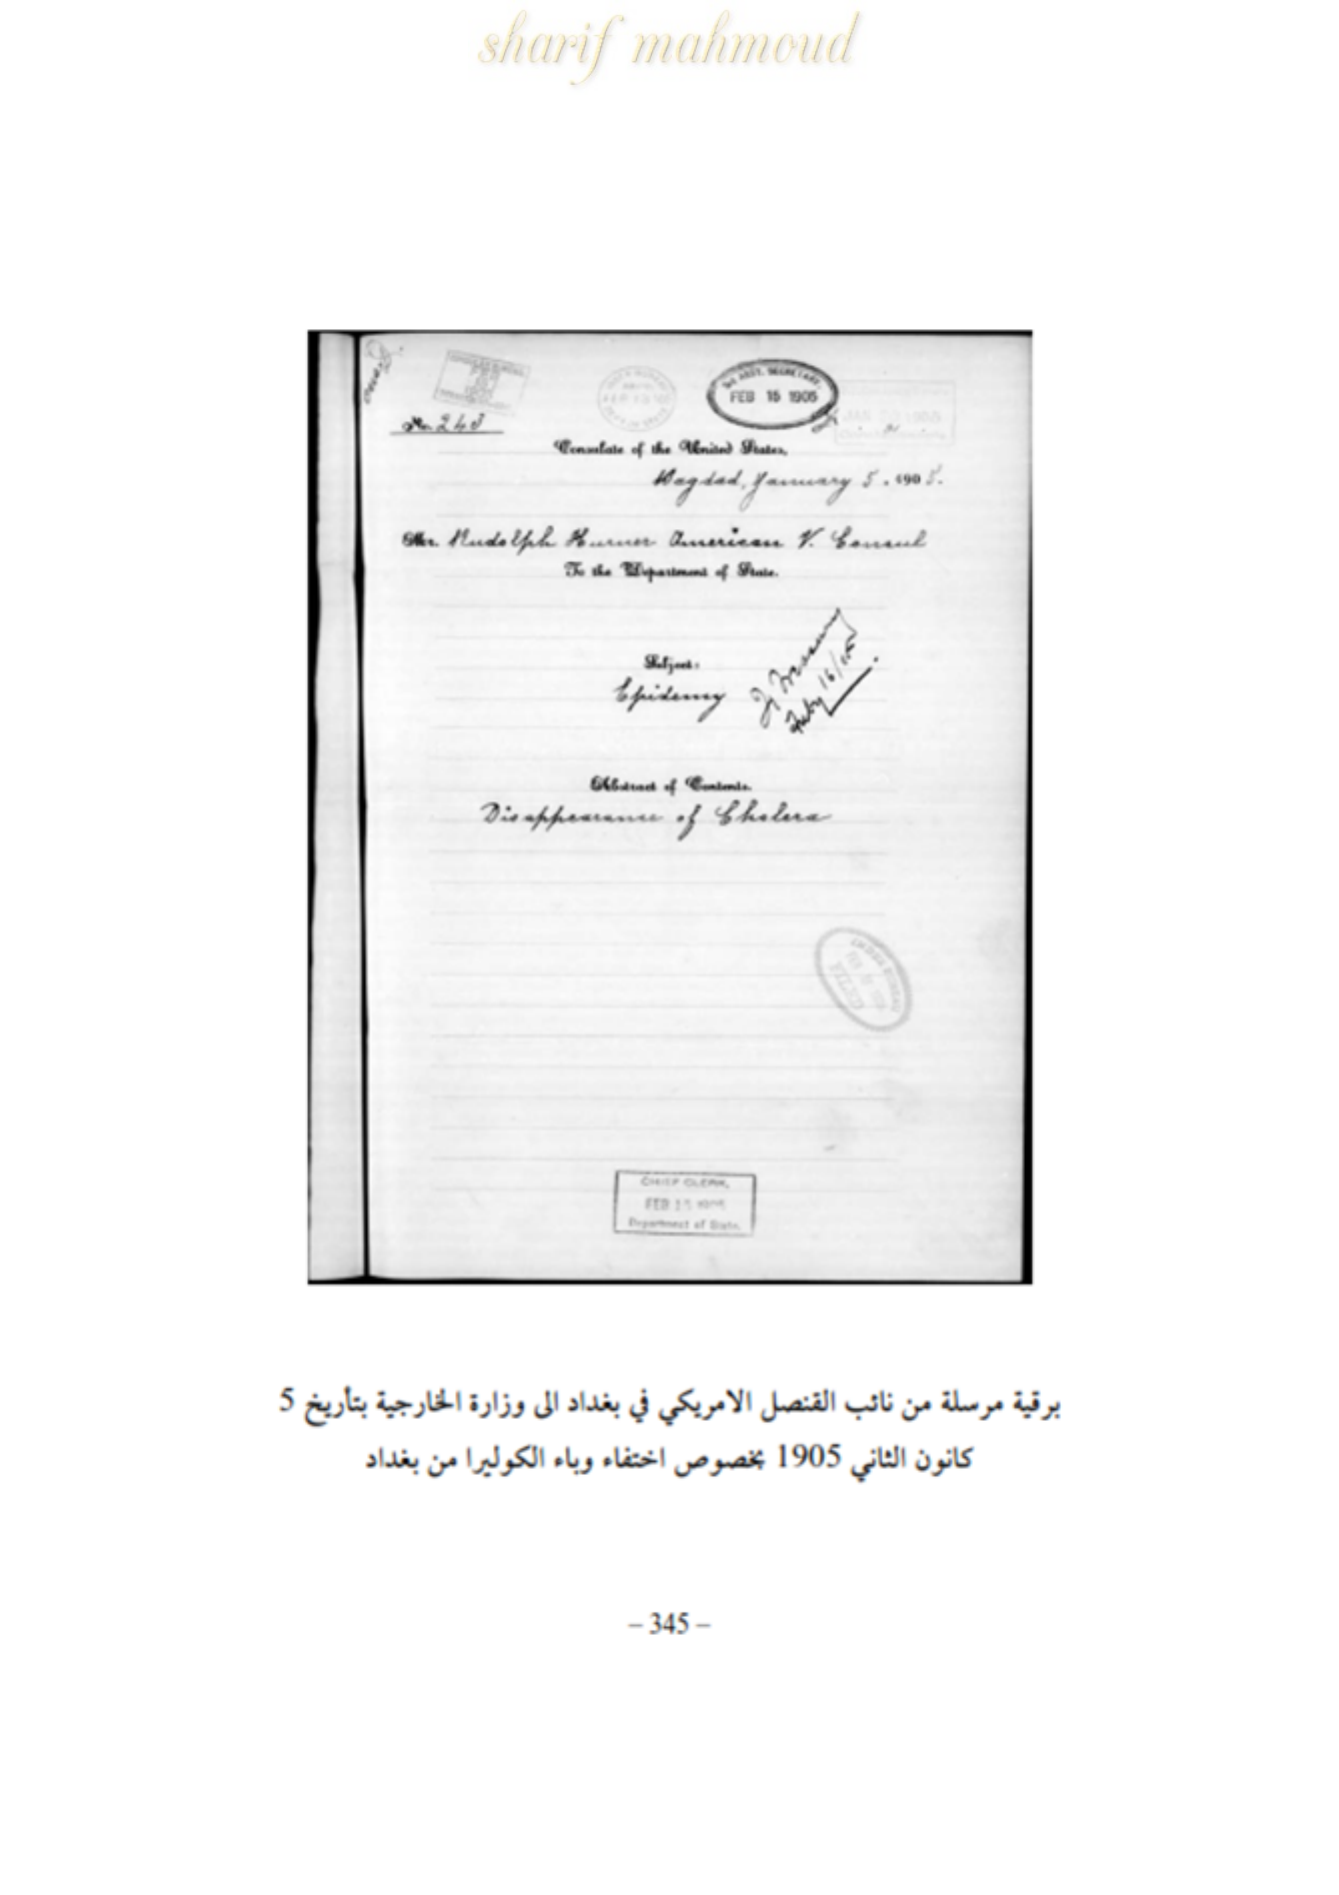 sharif mahmoud
3d ASST. SECRETARY.
FEB 15 1905
No. 243
Consulate of the United States,
Bagdad, January 5. 1905.
Mr. Rudolph Hurner American V. Consul
To the Department of State.
Subject:
Epidemy
Feby 16/05
Abstract of Contents.
Disappearance of Cholera
INDEX BUREAU
FILED
CHIEF CLERK,
FEB 15 1905
Department of State.
برقية مرسلة من نائب القنصل الامريكي في بغداد الى وزارة الخارجية بتأريخ 5
كانون الثاني 1905 بخصوص اختفاء وباء الكوليرا من بغداد
– 345 –